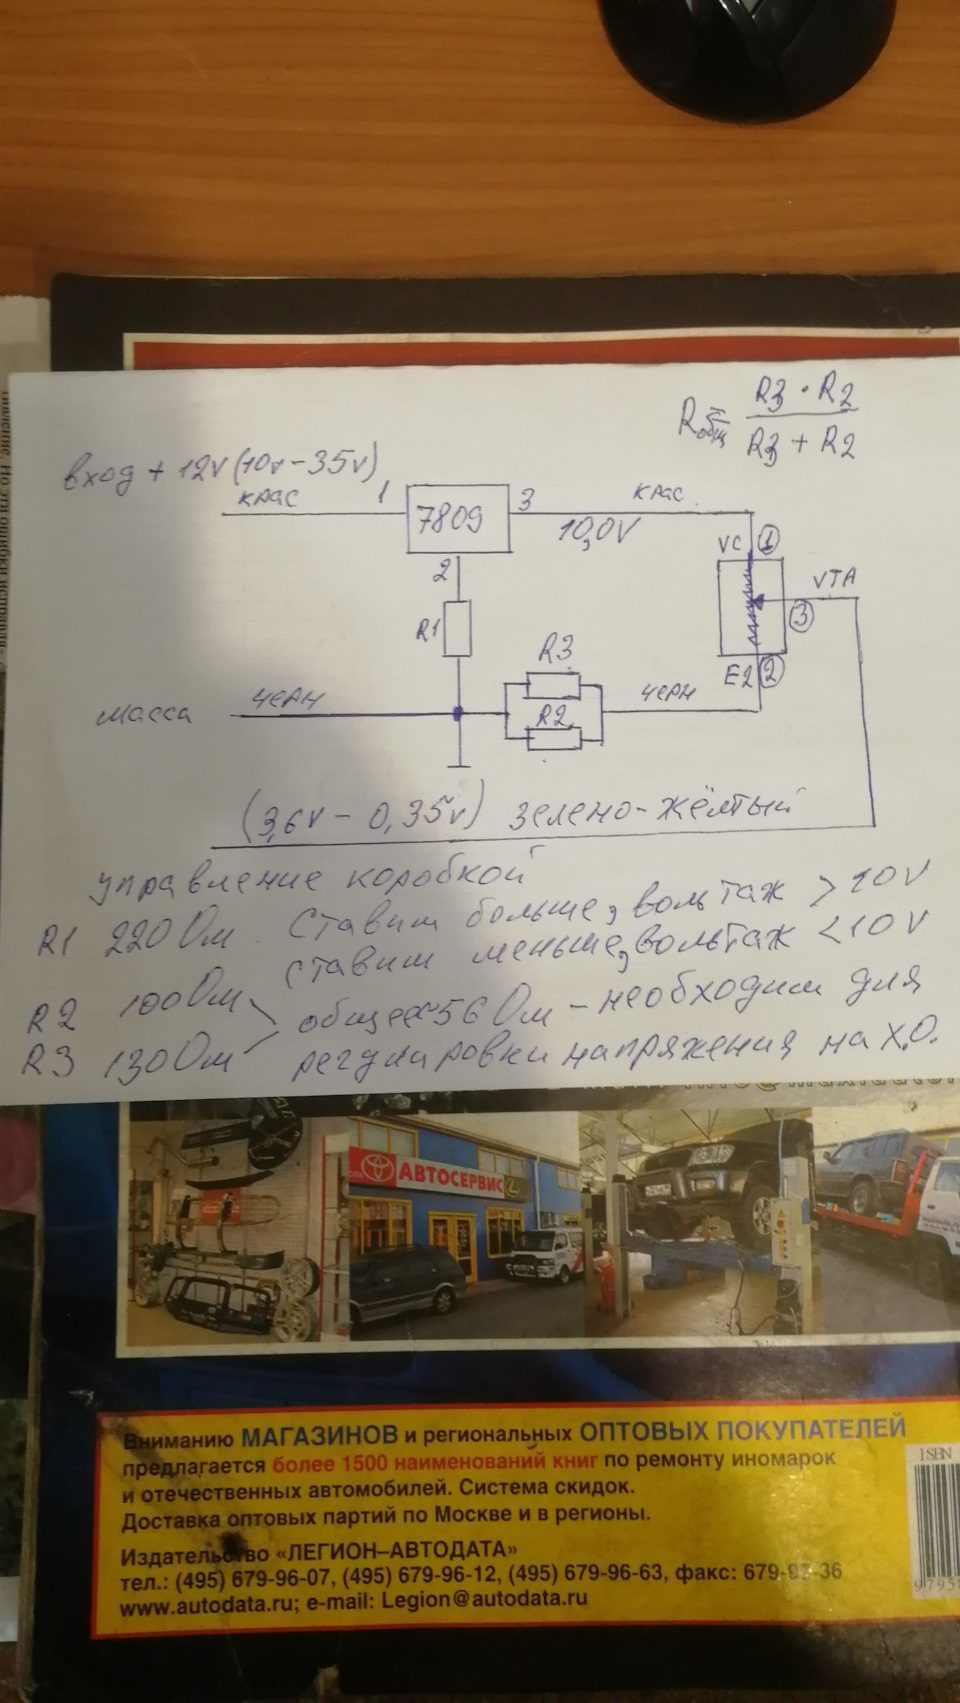 Rобщ = R3 · R2 / R3 + R2
вход + 12v (10v - 35v)
крас
1
7809
3
крас
10,0V
VC
1
2
R1
VTA
3
R3
E2
2
масса
черн
R2
черн
(3,6v - 0,35v) зелено-жёлтый
управление коробкой
R1 220 Ом. Ставим больше, вольтаж > 10V
ставим меньше, вольтаж < 10V
R2 100 Ом
R3 130 Ом
общее 56 Ом - необходим для
регулировки напряжения на х.о.
TOYOTA
АВТОСЕРВИС
Вниманию МАГАЗИНОВ и региональных ОПТОВЫХ ПОКУПАТЕЛЕЙ
предлагается более 1500 наименований книг по ремонту иномарок
и отечественных автомобилей. Система скидок.
Доставка оптовых партий по Москве и в регионы.
Издательство «ЛЕГИОН–АВТОДАТА»
тел.: (495) 679-96-07, (495) 679-96-12, (495) 679-96-63, факс: 679-97-36
www.autodata.ru; e-mail: Legion@autodata.ru
ISBN